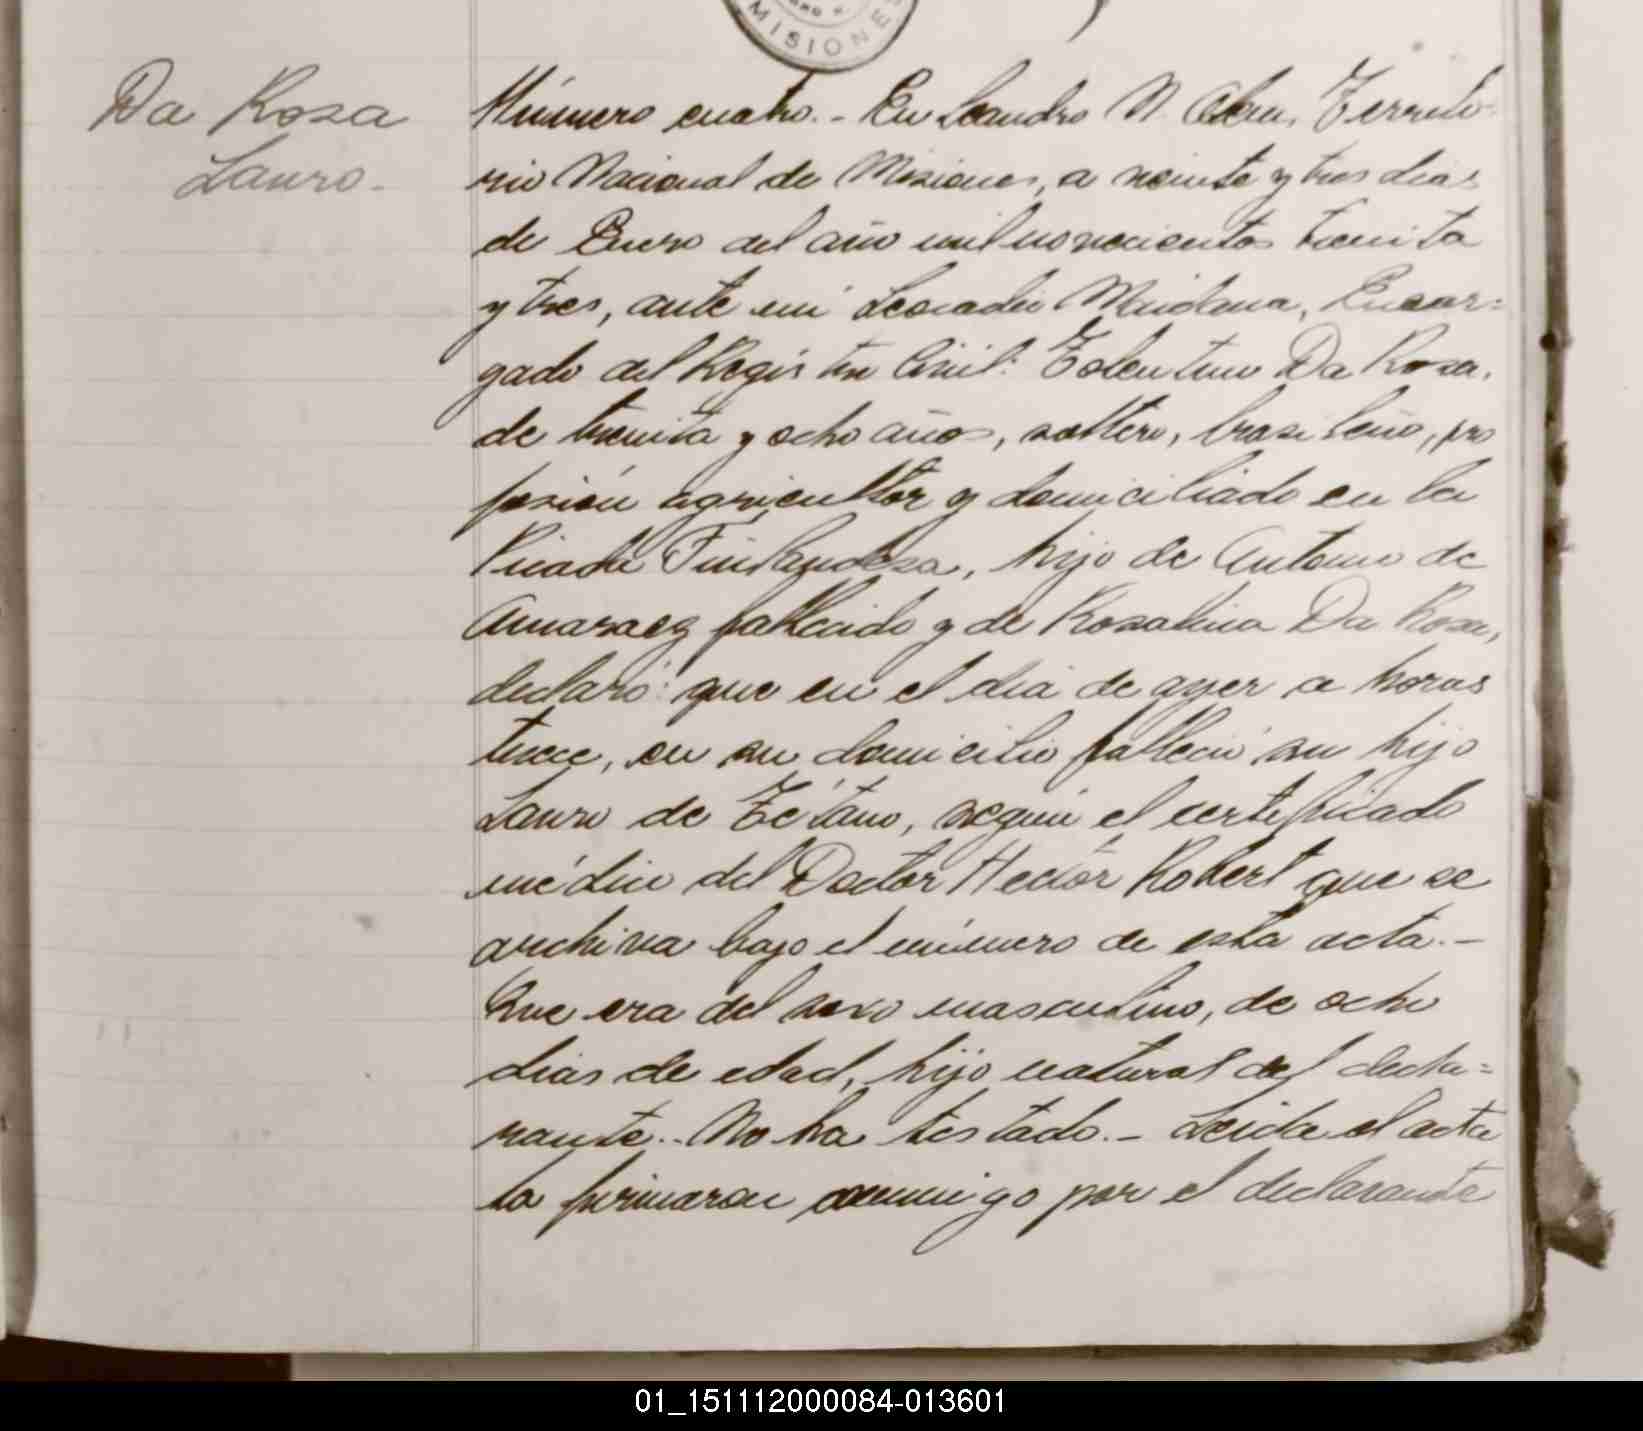 MISIONES
Da Rosa
Lauro.-
Número cuatro.- En Leandro N. Alem, Territo-
rio Nacional de Misiones, a veinte y tres dias
de Enero del año mil novecientos treinta
y tres, ante mi Leocadio Maidana, Encar=
gado del Registro Civil: Tolentino Da Rosa,
de treinta y ocho años, soltero, brasileño, pro
fesión agricultor y domiciliado en la
Picada Finlandesa, hijo de Antonio de
fallecido y de Rosalina Da Rosa,
declaró: que en el dia de ayer a horas
trece, en su domicilio falleció su hijo
Lauro de Tétano, según el certificado
médico del Doctor Hector Robert que se
archiva bajo el número de esta acta.-
Que era del sexo masculino, de ocho
dias de edad, hijo natural del decla=
rante.- No ha testado.- Leida el acta
la firmaron conmigo por el declarante
01_151112000084-013601